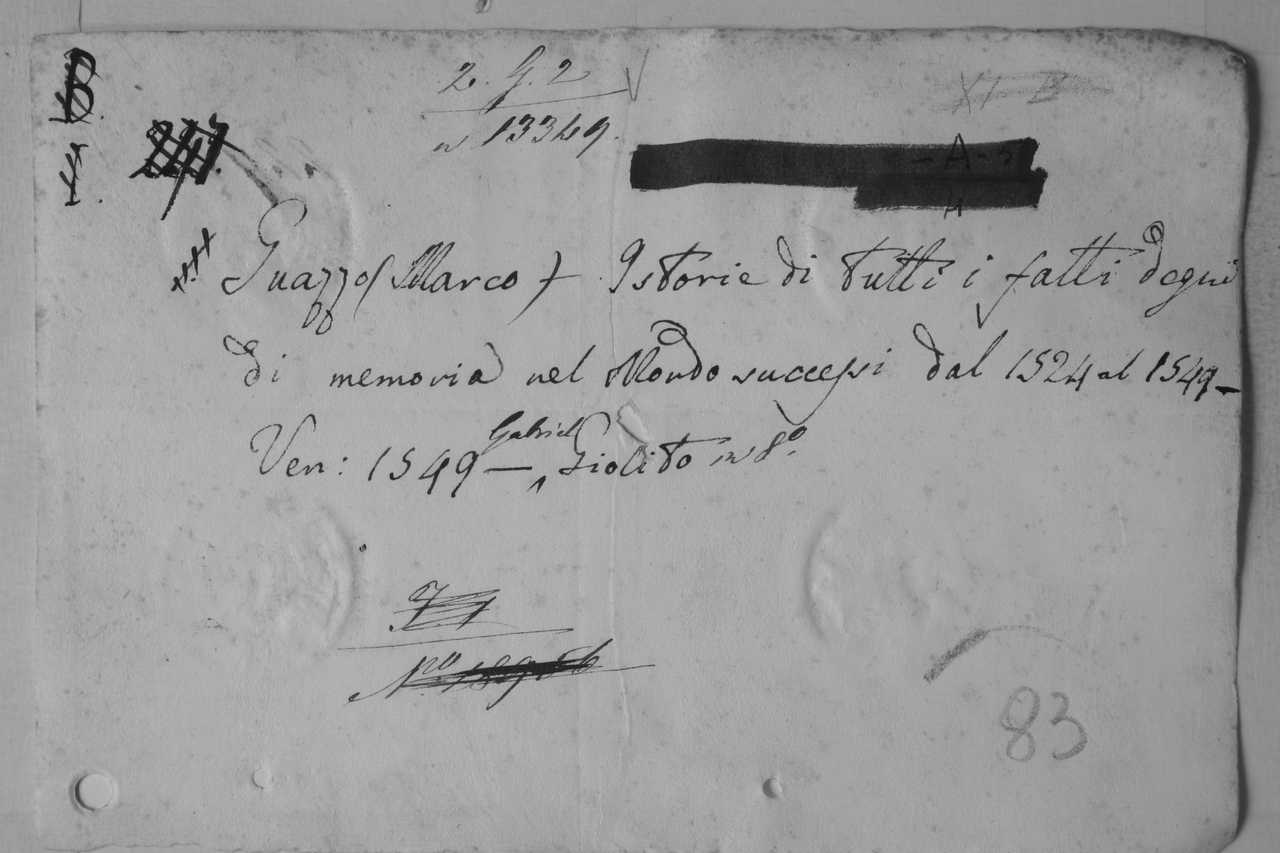 2. G. 2
n 13349.
Guazzo (Marco) Istorie di tutti i fatti degni
di memoria nel Mondo successi dal 1524 al 1549 –
Ven: 1549 – Gabriel Giolito in 8º.
Nro
83